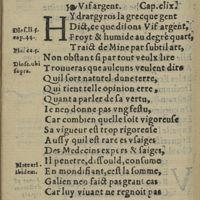 Vif argent. Cap. clix.
Hydrargyros la grecque gent
Dict, ce que disons Vif argent,
Froyt & humide au degré quart,
Traict de Mine par subtil art,
Non obstant si par tout veulx lire
Trouueras que aulcuns veulent dire
Quil sort naturel dune terre,
Qui tient telle opinion erre,
Quant a parler de sa vertu,
Ie nen donne pas vng festu,
Car combien quelle soit vigoreuse
Sa vigueur est trop rigoreuse
Aussy quil est rares et vsaiges
Des Medecins expers & saiges,
Il penetre, dissould, consume
En mondifiant, est la somme,
Galien neo faict pas grant cas
Car luy viuant ne regnoit pas
Dios. li. 5.
cap. 44.
Dios. vbi
supra.
ibidem.